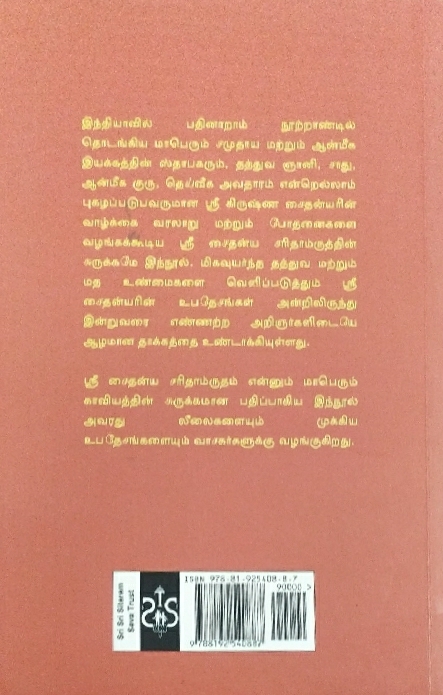 இந்தியாவில் பதினாறாம் நூற்றாண்டில்
தொடங்கிய மாபெரும் சமுதாய மற்றும் ஆன்மீக
இயக்கத்தின் ஸ்தாபகரும், தத்துவ ஞானி, சாது,
ஆன்மீக குரு, தெய்வீக அவதாரம் என்றெல்லாம்
புகழப்படுபவருமான ஸ்ரீ கிருஷ்ண சைதன்யரின்
வாழ்க்கை வரலாறு மற்றும் போதனைகளை
வழங்கக்கூடிய ஸ்ரீ சைதன்ய சரிதாம்ருத்தின்
சுருக்கமே இந்நூல். மிகவுயர்ந்த தத்துவ மற்றும்
மத உண்மைகளை வெளிப்படுத்தும் ஸ்ரீ
சைதன்யரின் உபதேசங்கள் அன்றிலிருந்து
இன்றுவரை எண்ணற்ற அறிஞர்களிடையே
ஆழமான தாக்கத்தை உண்டாக்கியுள்ளது.
ஸ்ரீ சைதன்ய சரிதாம்ருதம் என்னும் மாபெரும்
காவியத்தின் சுருக்கமான பதிப்பாகிய இந்நூல்
அவரது லீலைகளையும் முக்கிய
உபதேசங்களையும் வாசகர்களுக்கு வழங்குகிறது.
Sri Sri Sitaram
Seva Trust
ISBN 978-81-925408-8-7
90000 >
9 788192 540887